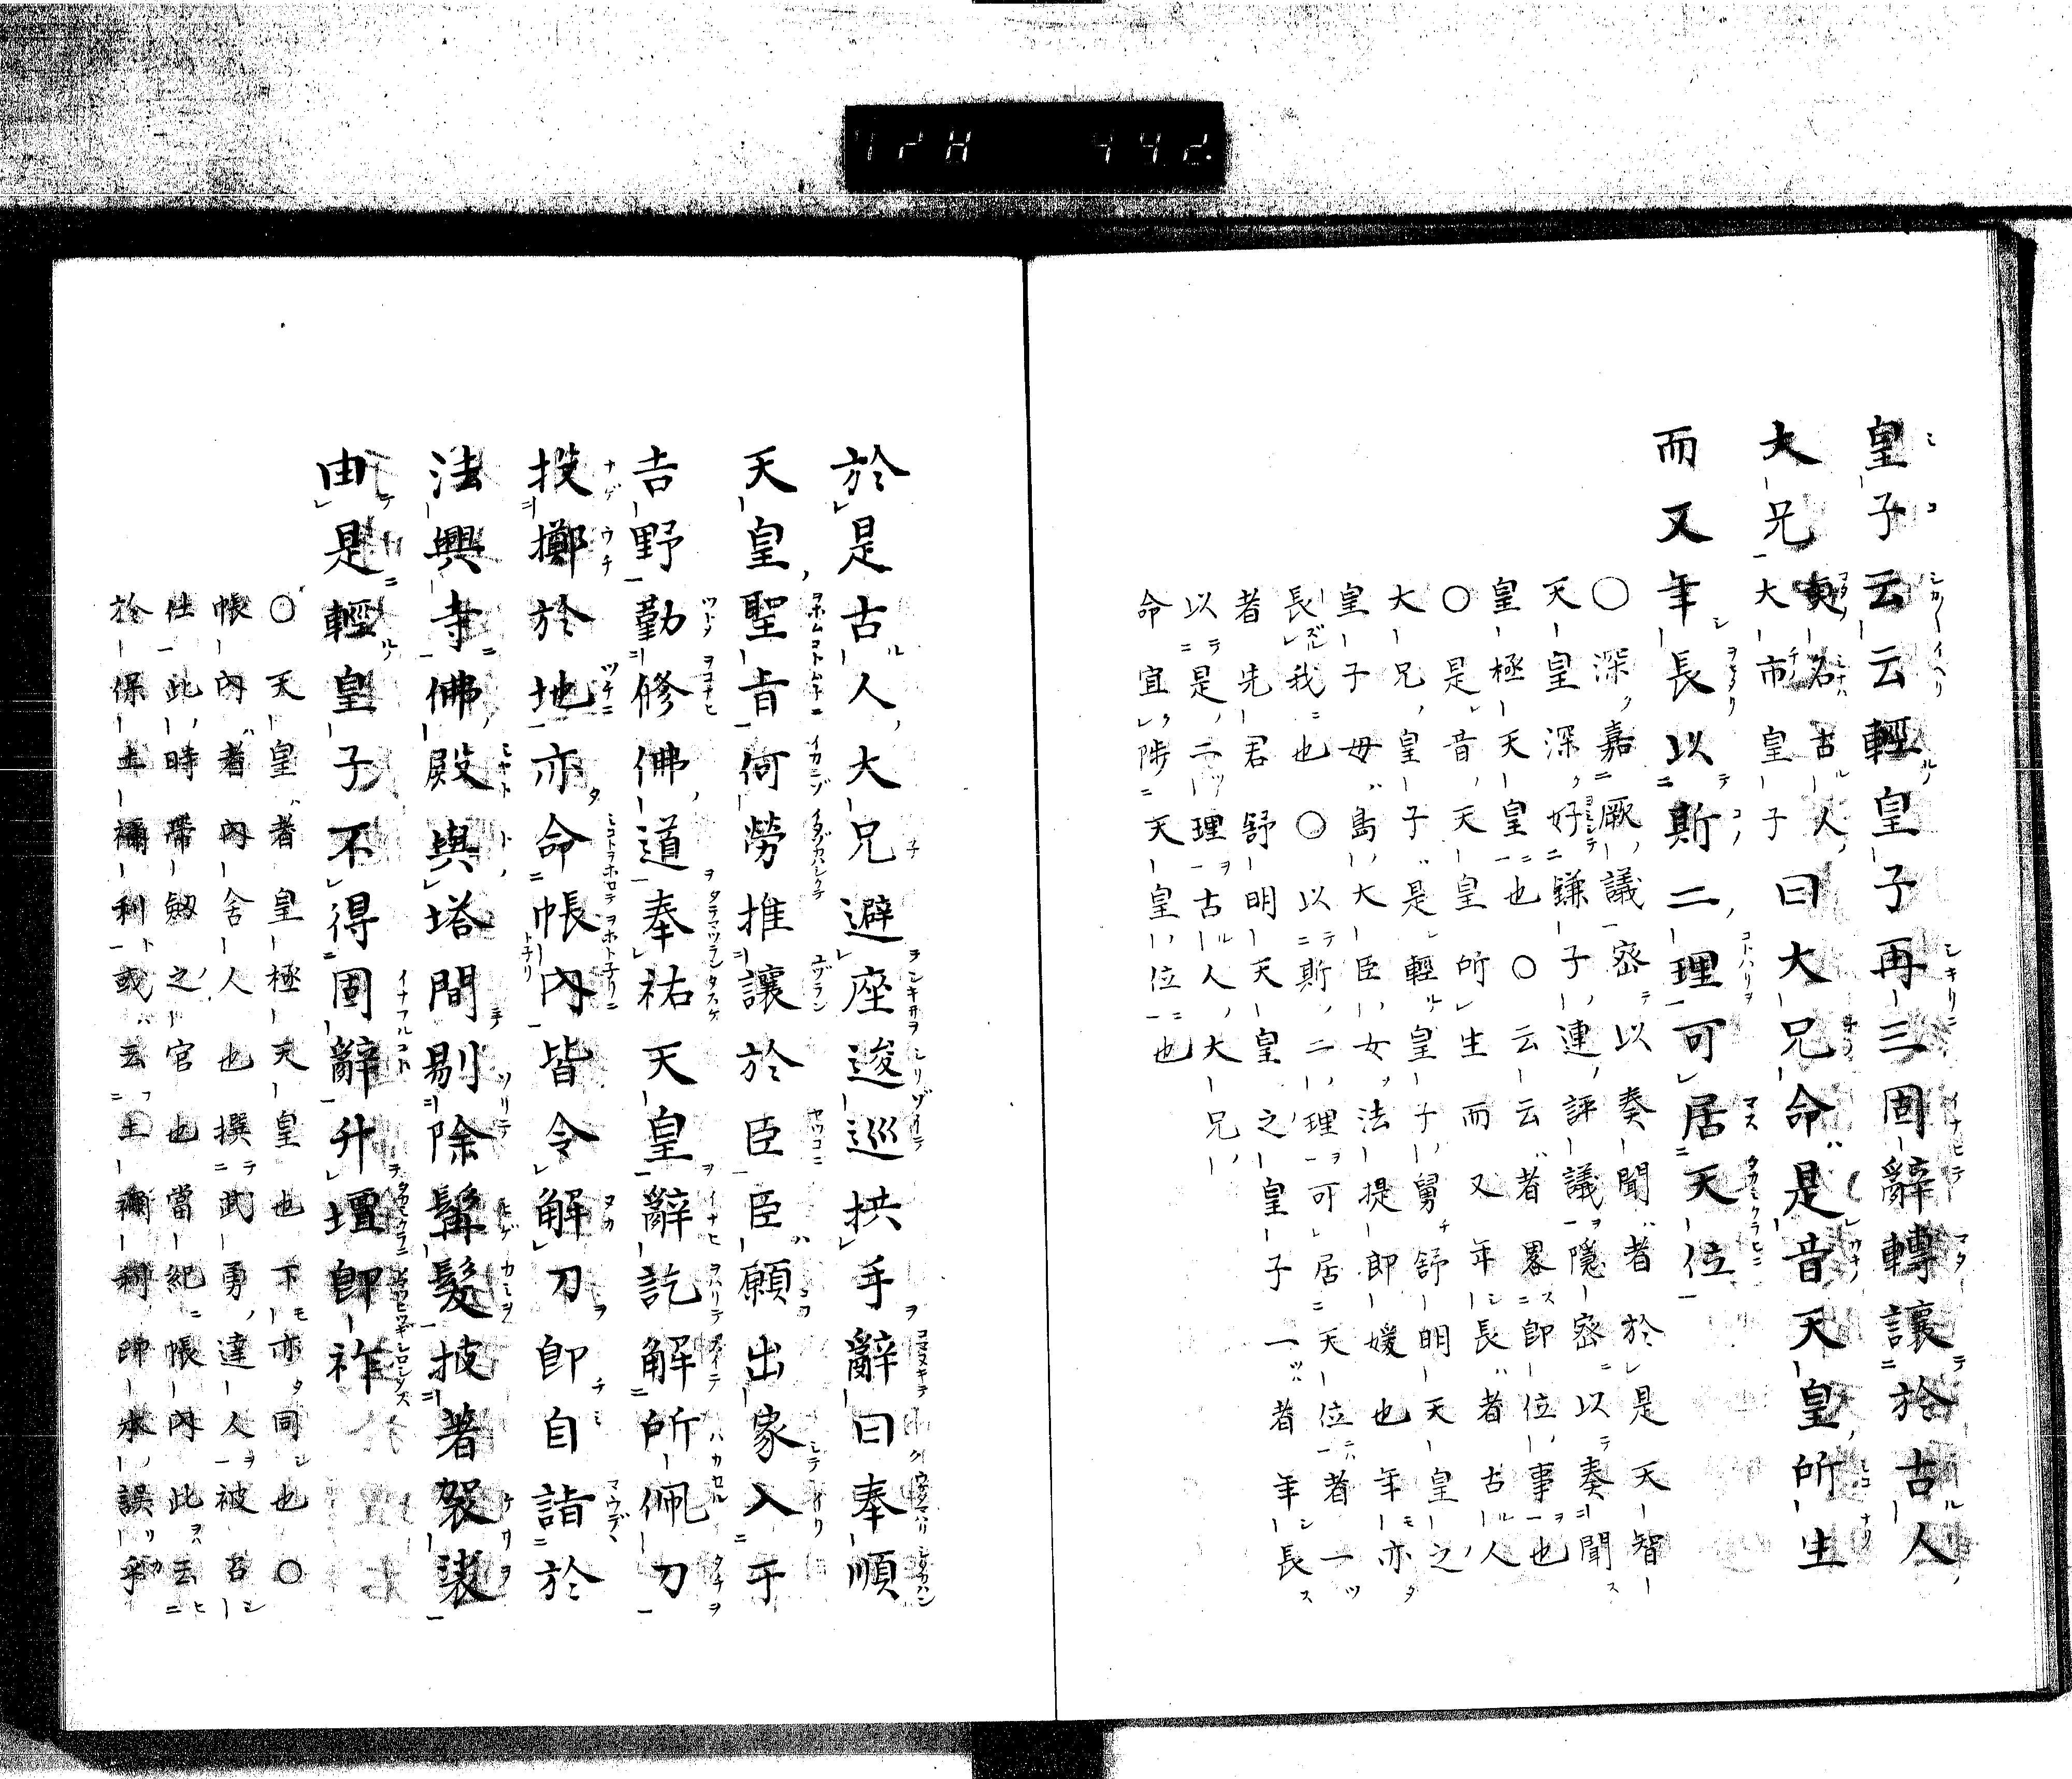 皇子云云輕皇子再三固辭轉讓於古人
大兄更名古人大市皇子曰大兄命是昔天皇所生
而又年長以斯二理可居天位
○深嘉厥議密以奏聞者於是天智
天皇深好鎌子連評議隱密以奏聞
皇極天皇也○云云者畧即位事也
○是昔天皇所生而又年長者古人
大兄皇子是輕皇子舅舒明天皇之
皇子母島大臣女法提郎媛也年亦
長我也○以斯二理可居天位者一
者先君舒明天皇之皇子一者年長
以是二理古人大兄
命宜陟天皇位也
於是古人大兄避座逡巡拱手辭曰奉順
天皇聖旨何勞推讓於臣臣願出家入于
吉野勤修佛道奉祐天皇辭訖解所佩刀
投擲於地亦命帳內皆令解刀即自詣於
法興寺佛殿與塔間剔除髯髮披著袈裟
由是輕皇子不得固辭升壇即祚
○天皇者皇極天皇也下亦同也○
帳內者內舍人也撰武勇達人被召
仕此時帶劔之官也當紀帳內此云
於保土禰利或云土禰利帥本誤乎